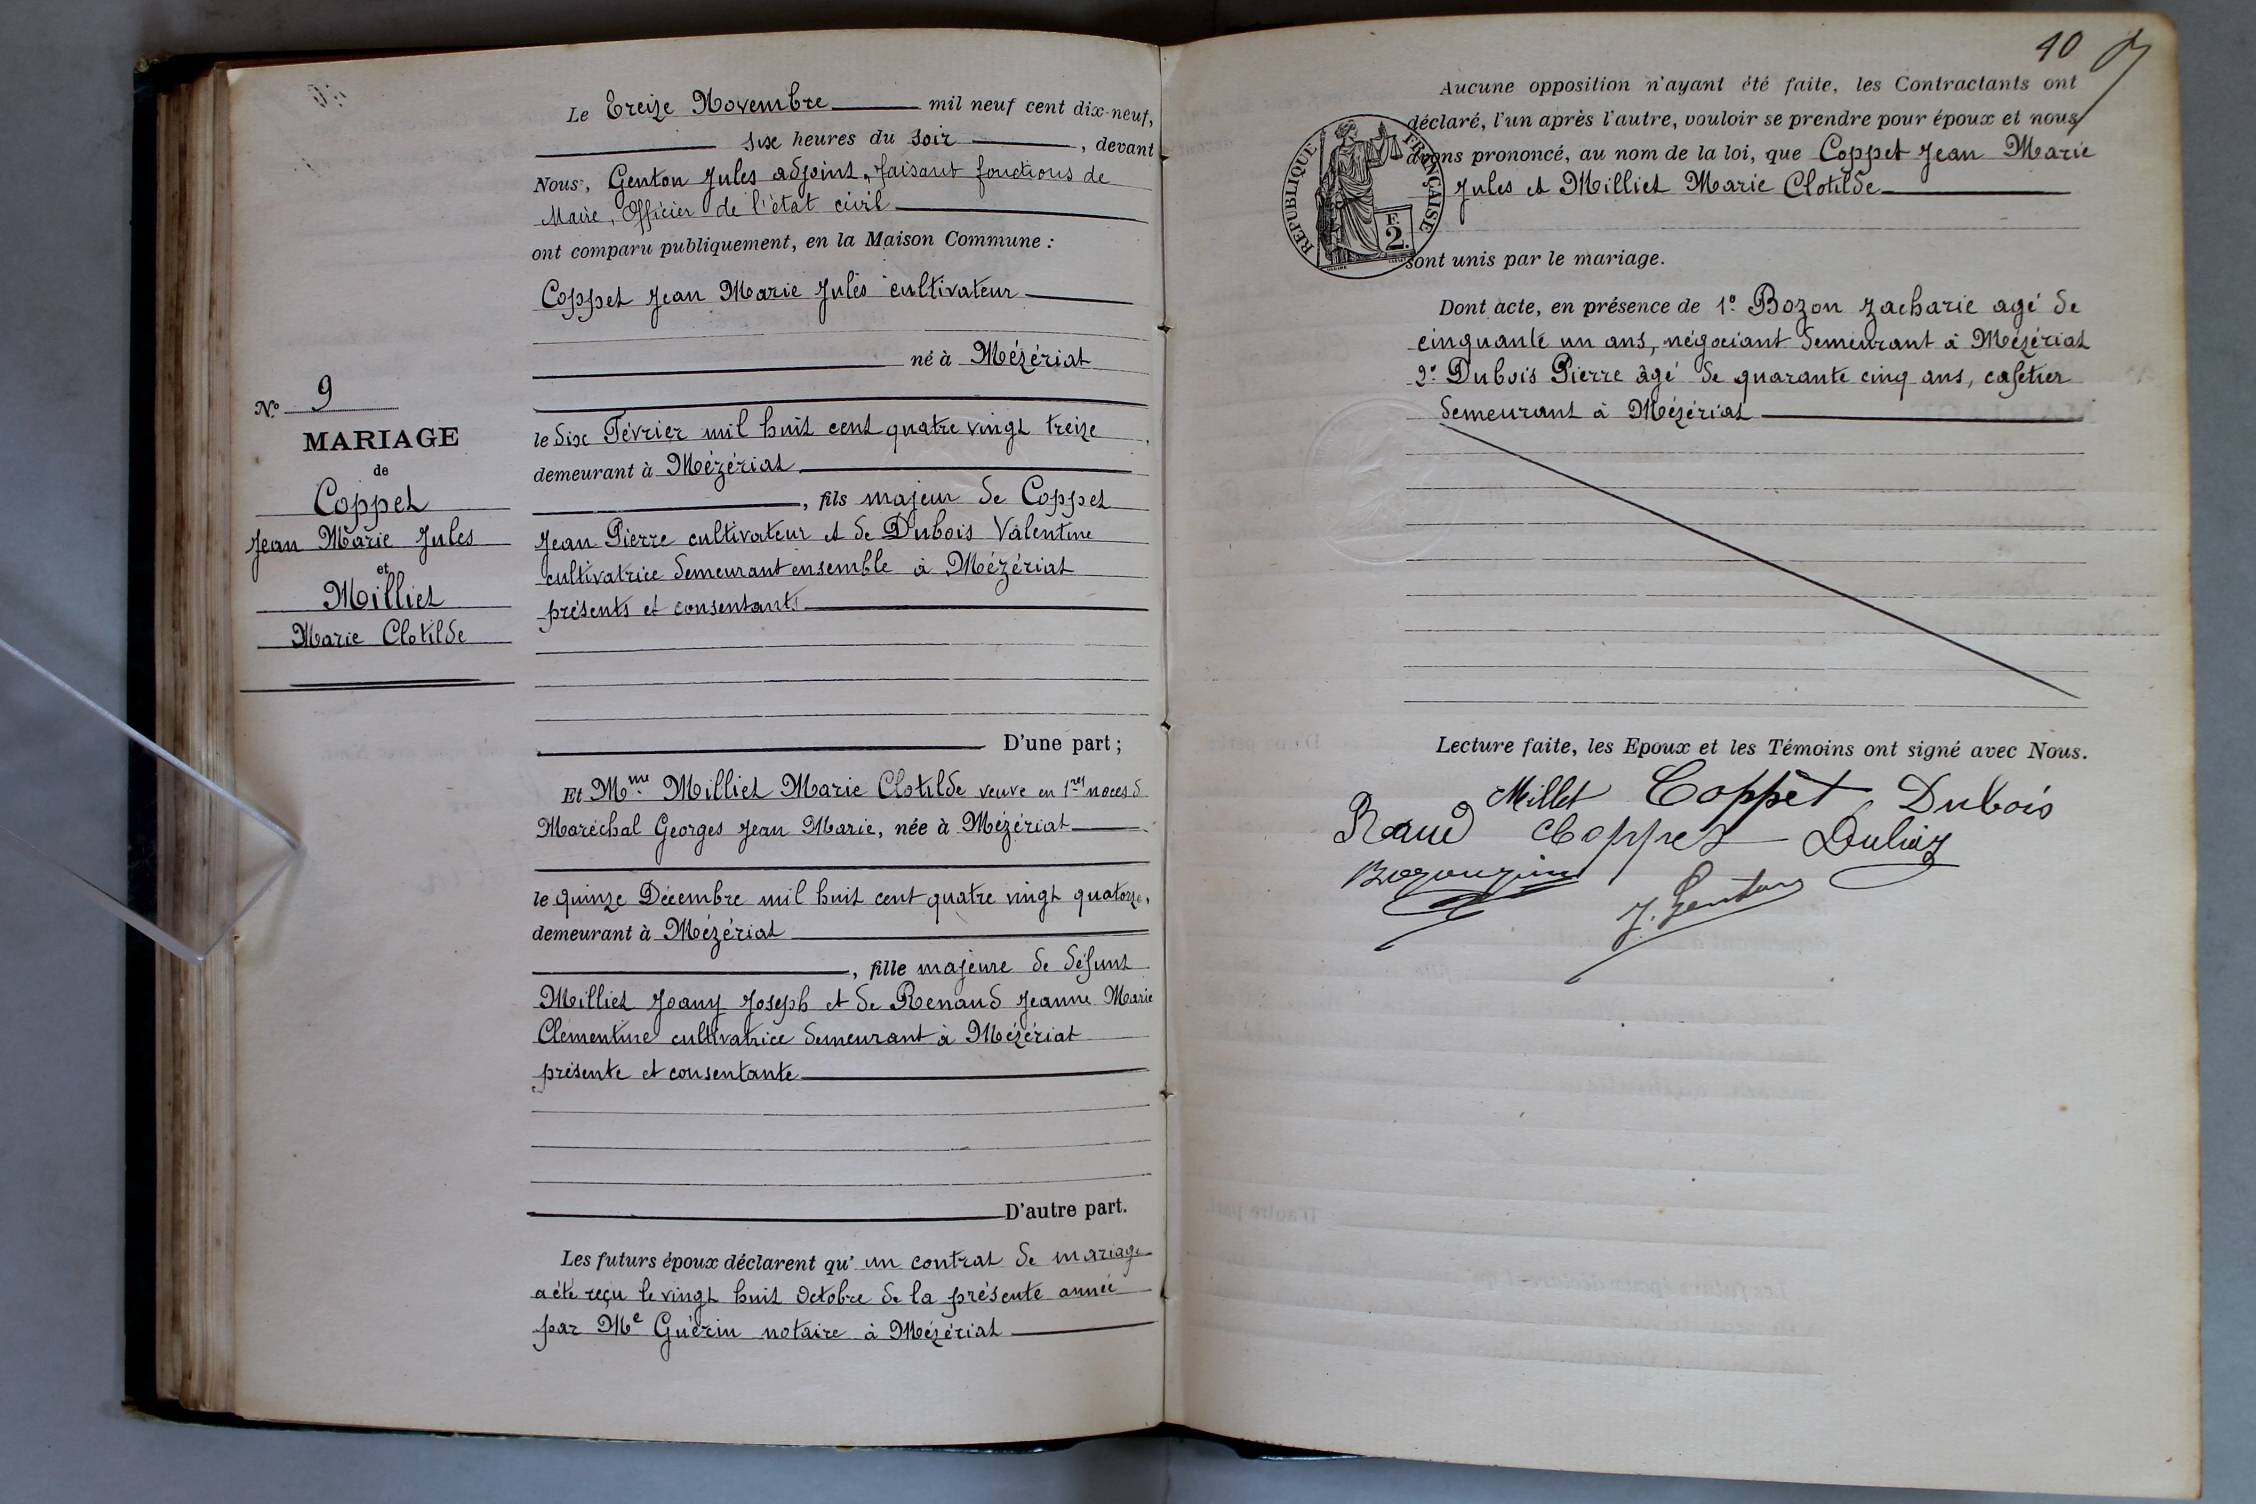 Le Treize Novembre mil neuf cent dix-neuf,
six heures du soir, devant
Nous, Genton Jules adjoint, faisant fonctions de
Maire, Officier de l'état civil
ont comparu publiquement, en la Maison Commune :
Coppet Jean Marie Jules cultivateur
né à Mézériat
N° 9
MARIAGE
de
Coppet
Jean Marie Jules
et
Milliet
Marie Clotilde
le dix Février mil huit cent quatre vingt treize,
demeurant à Mézériat
, fils majeur de Coppet
Jean Pierre cultivateur et de Dubois Valentine
cultivatrice demeurant ensemble à Mézériat
présents et consentants
D'une part ;
Et Mme Milliet Marie Clotilde veuve en 1res noces d
Maréchal Georges Jean Marie, née à Mézériat
le quinze Décembre mil huit cent quatre vingt quatorze,
demeurant à Mézériat
, fille majeure de défunt
Milliet Joany Joseph et de Renaud Jeanne Marie
Clementine cultivatrice demeurant à Mézériat
présente et consentante
D'autre part.
Les futurs époux déclarent qu' un contrat de mariage
a été reçu le vingt huit Octobre de la présente année
par Me Guérin notaire à Mézériat
40
Aucune opposition n'ayant été faite, les Contractants ont
déclaré, l'un après l'autre, vouloir se prendre pour époux et nous
avons prononcé, au nom de la loi, que Coppet Jean Marie
Jules et Milliet Marie Clotilde
RÉPUBLIQUE FRANÇAISE
F.
2.
sont unis par le mariage.
Dont acte, en présence de 1° Bozon Zacharie agé de
cinquante un ans, négociant demeurant à Mézériat
2° Dubois Pierre âgé de quarante cinq ans, cafetier
demeurant à Mézériat
Lecture faite, les Epoux et les Témoins ont signé avec Nous.
Millet Coppet Dubois
Coppet
J. Genton